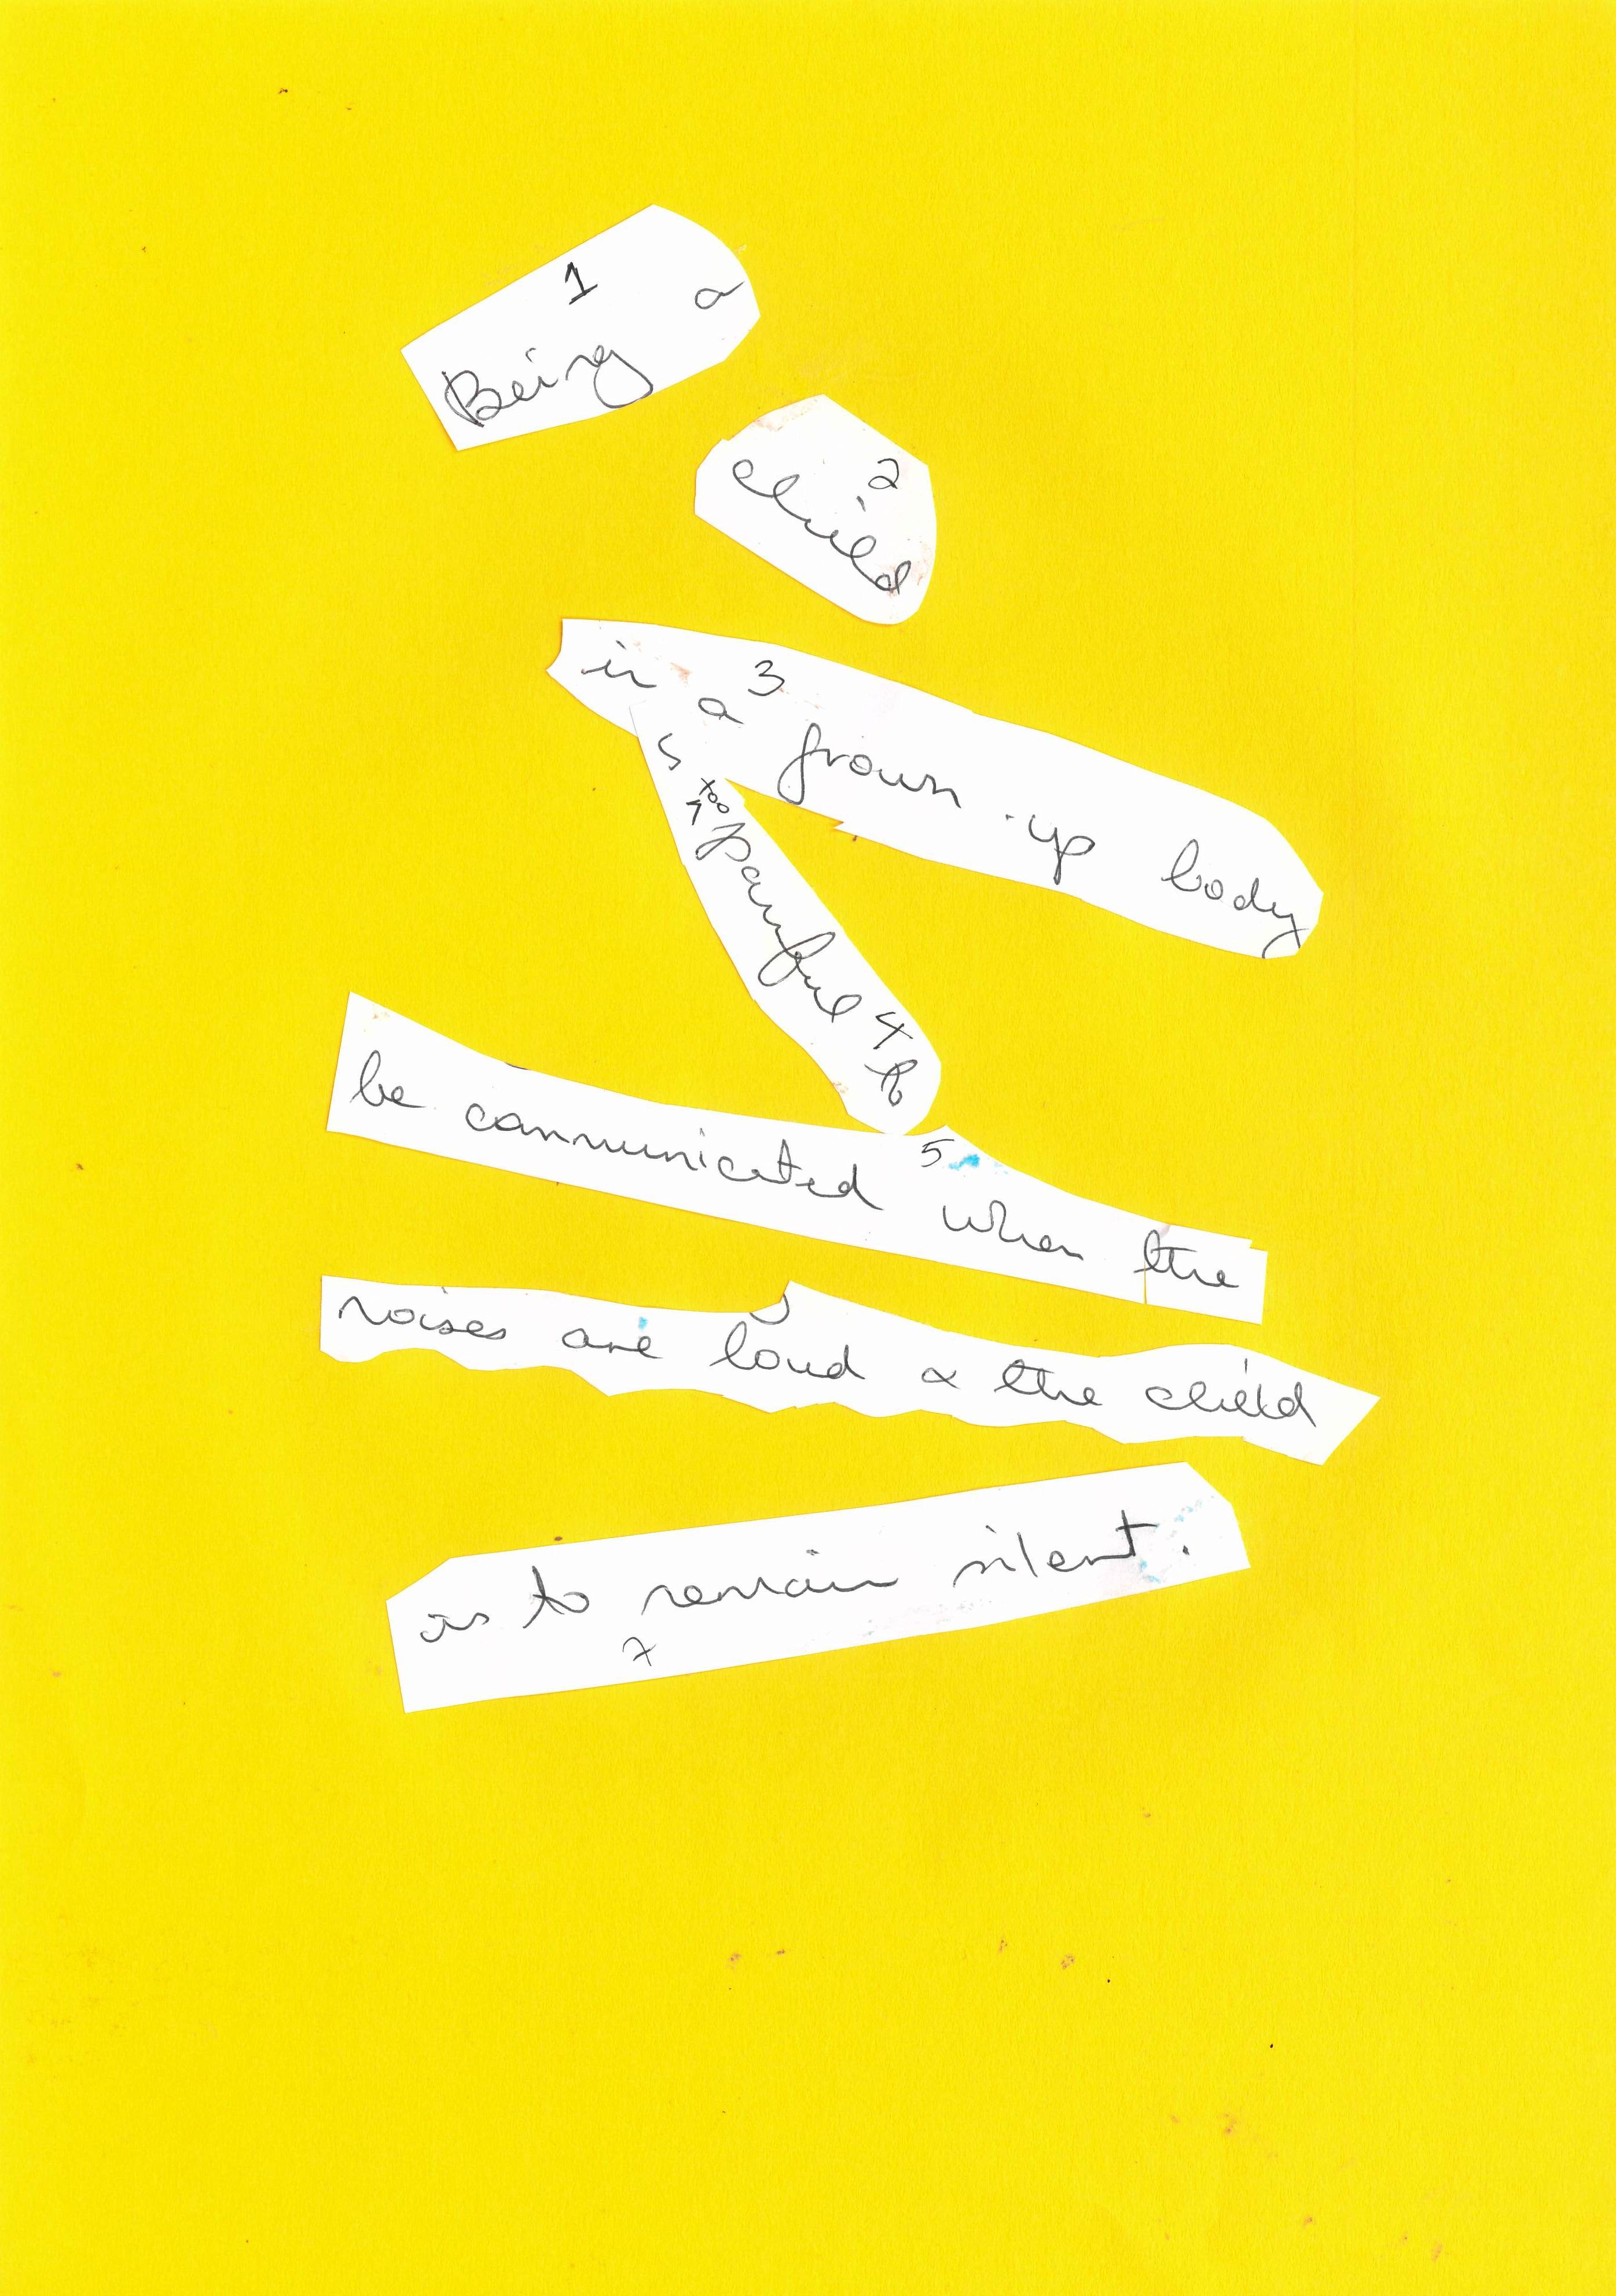 1 a
Being
2
child
3
in a grown-up body
s too painful 4 to
5
be communicated when the
noises are loud & the child
is to remain silent.
7